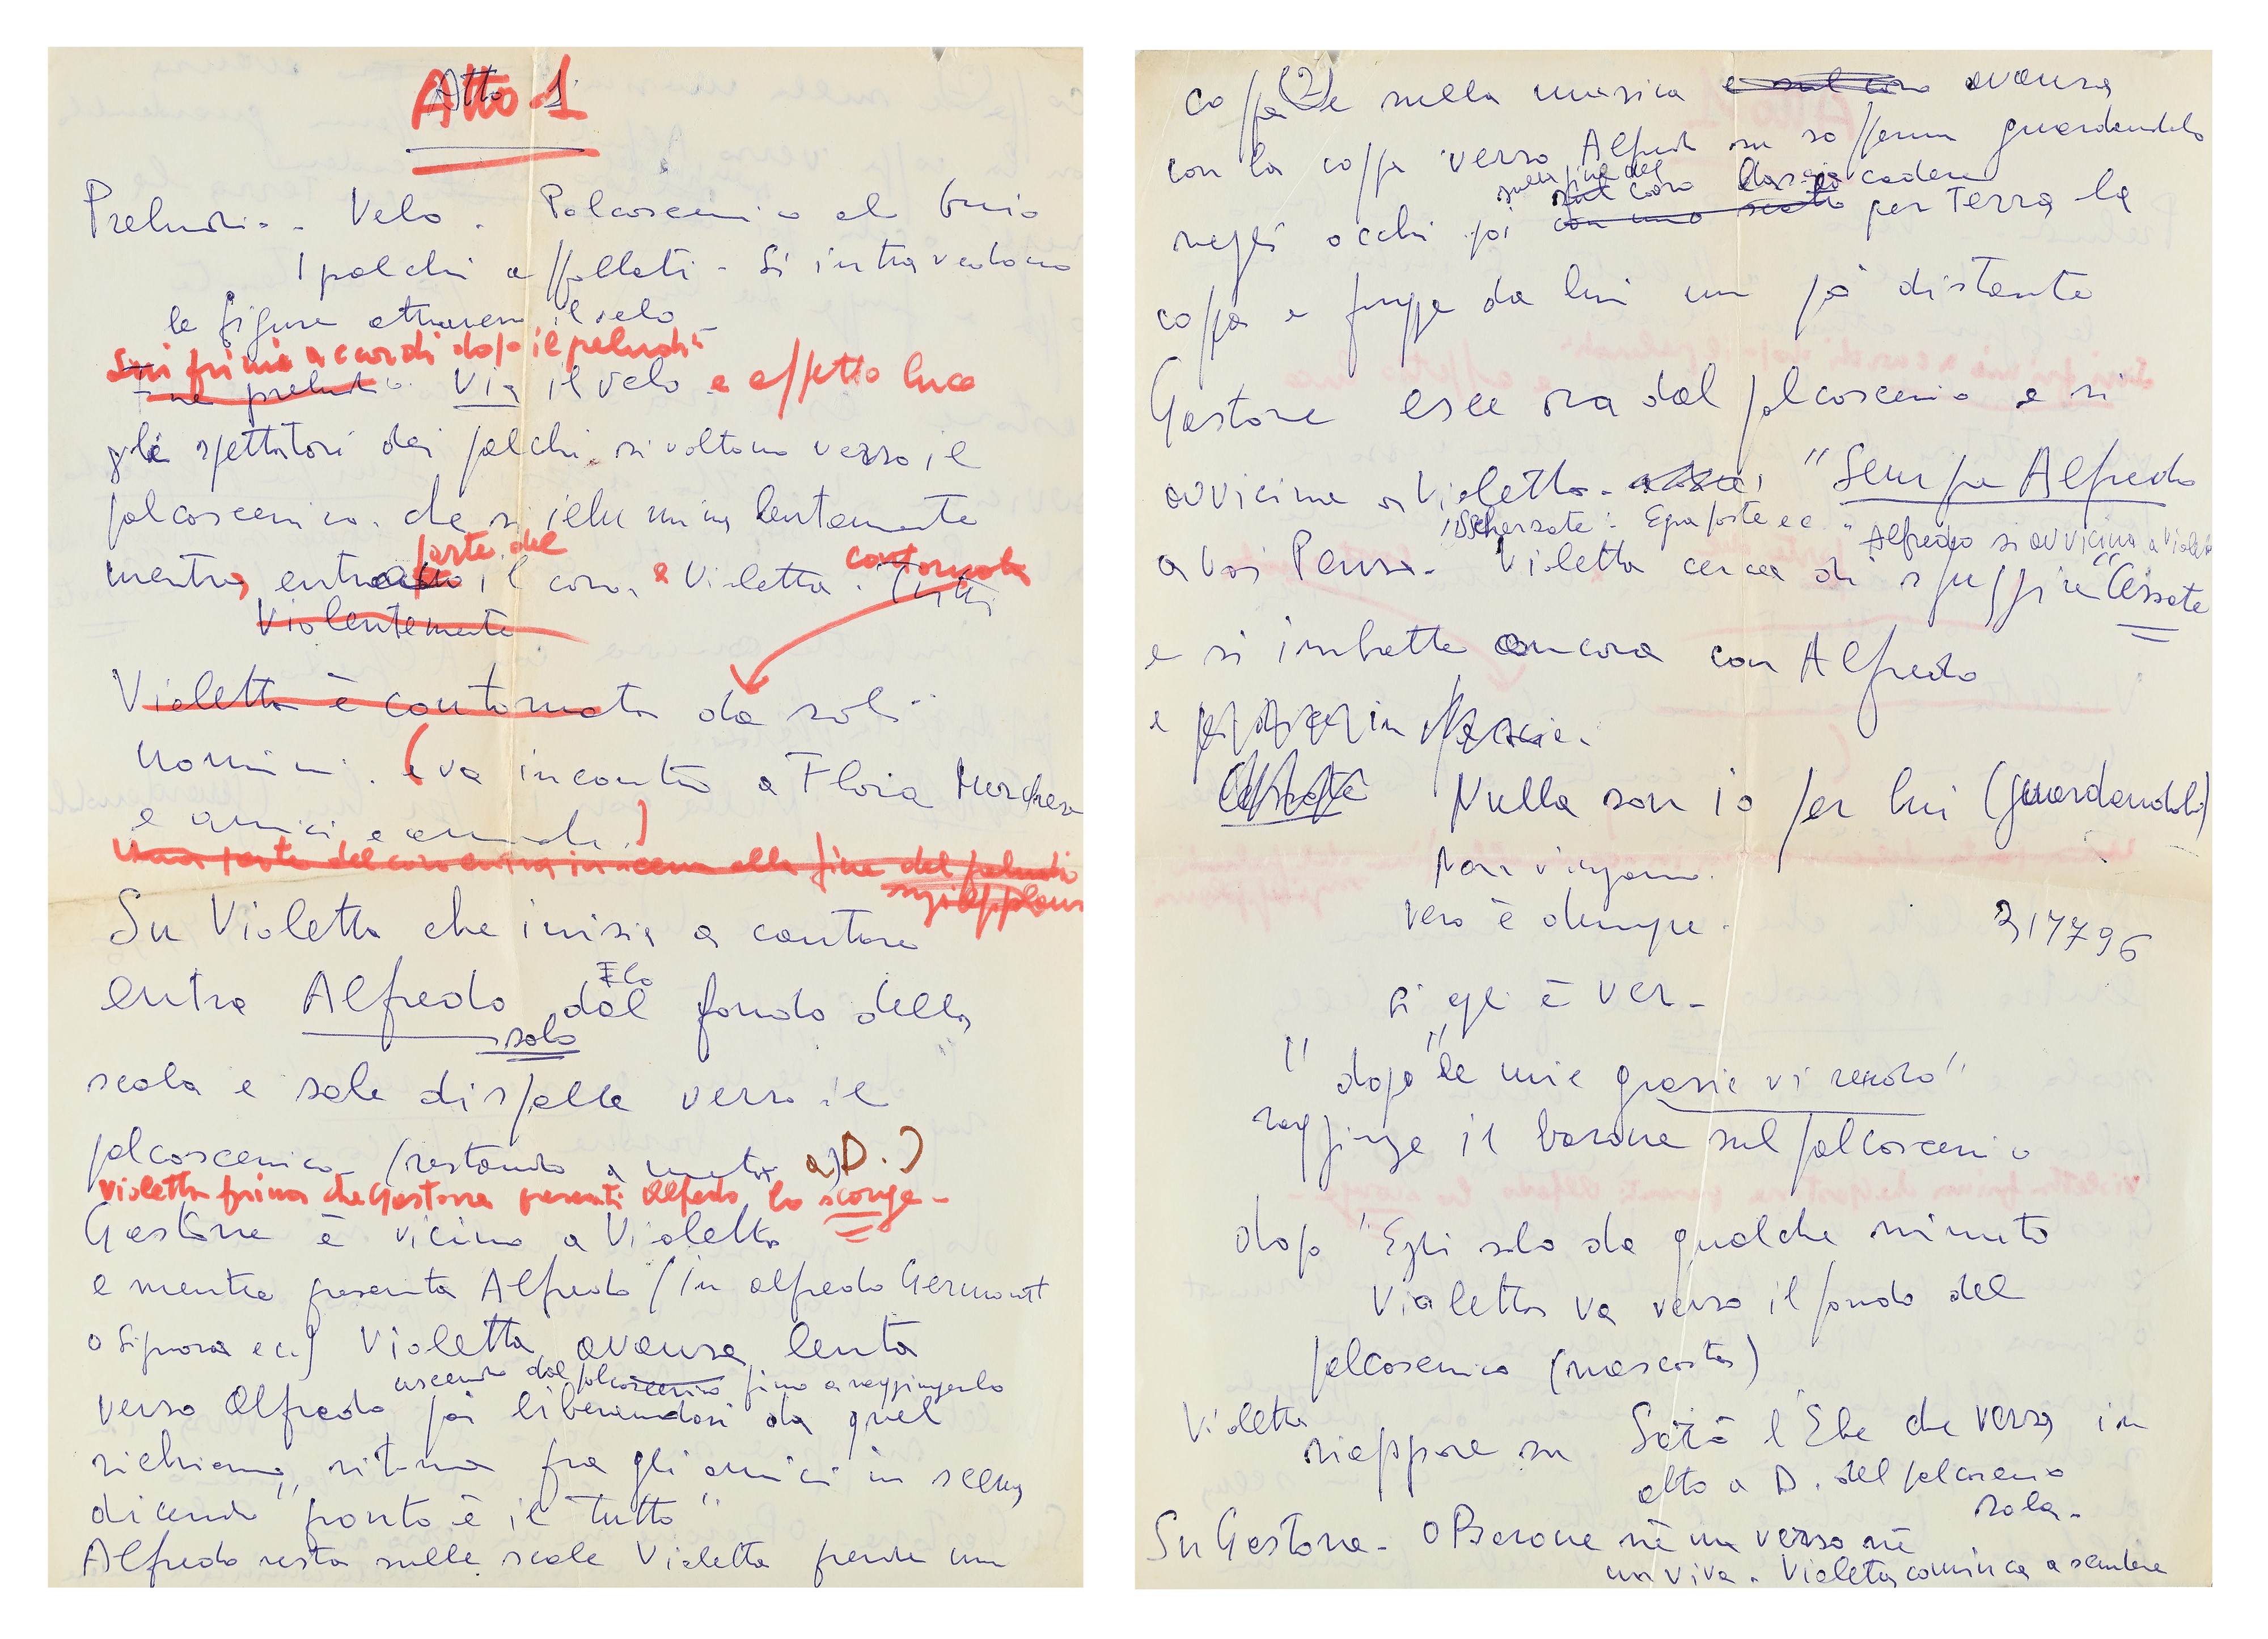 Atto 1
Preludio. Velo. Palcoscenico al buio
I palchi affollati - Si intravedono
le figure attraverso il velo -
Sui primi accordi dopo il preludio
Fine preludio. Via il velo e effetto luce
gli spettatori dei palchi si voltano verso il
palcoscenico. che si illumina lentamente
parte del
mentre, entrano il coro, e Violetta. Tutti
contornata
Violentemente
Violetta è contornata da soli
uomini. (va incontro a Flora Marchese
e amici e amiche)
Una parte del coro entra in scena alla fine del preludio
Su Violetta che inizia a cantare
entra Alfredo dal fondo della
solo
scala e sale di spalle verso il
palcoscenico - (restando a metà a D.)
Violetta prima che Gastone presenti Alfredo lo scorge -
Gastone è vicino a Violetta
e mentre presenta Alfredo (In Alfredo Germont
o Signora ecc) Violetta avanza lenta
uscendo dal palcoscenico fino a raggiungerlo
verso Alfredo, poi liberandosi da quel
richiamo, ritorna fra gli amici in scena
dicendo "pronto è il tutto"
Alfredo resta sulle scale Violetta prende una
(2)
coppa e sulla musica e sul coro avanza
con la coppa verso Alfredo su sofferma guardandolo
sulla fine del
sul coro lascia cadere
negli occhi poi con uno scatto per terra la
coppa e fugge da lui un pò distante
Gastone esce ora dal palcoscenico e si
avvicina a Violetta. "Sempre Alfredo
"Scherzate". Egra foste ecc. " Alfredo si avvicina a Violetta
a Voi Pensa - Violetta cerca di sfuggire "Cessate
e si imbatte ancora con Alfredo
e
Nulla son io per lui (guardandolo)
Non v'inganno.
Vero è dunque.
317796
Si egli è ver -
" dopo "le mie grazie vi rendo"
raggiunge il barone sul palcoscenico
dopo "Egli solo da qualche minuto
Violetta va verso il fondo del
palcoscenico (nascosta)
Violetta
riappare su Sarò l'Ebe che versa in
alto a D. del palcoscenico
sola.
Su Gastone - O Barone nè un verso nè
un viva. Violetta comincia a scendere